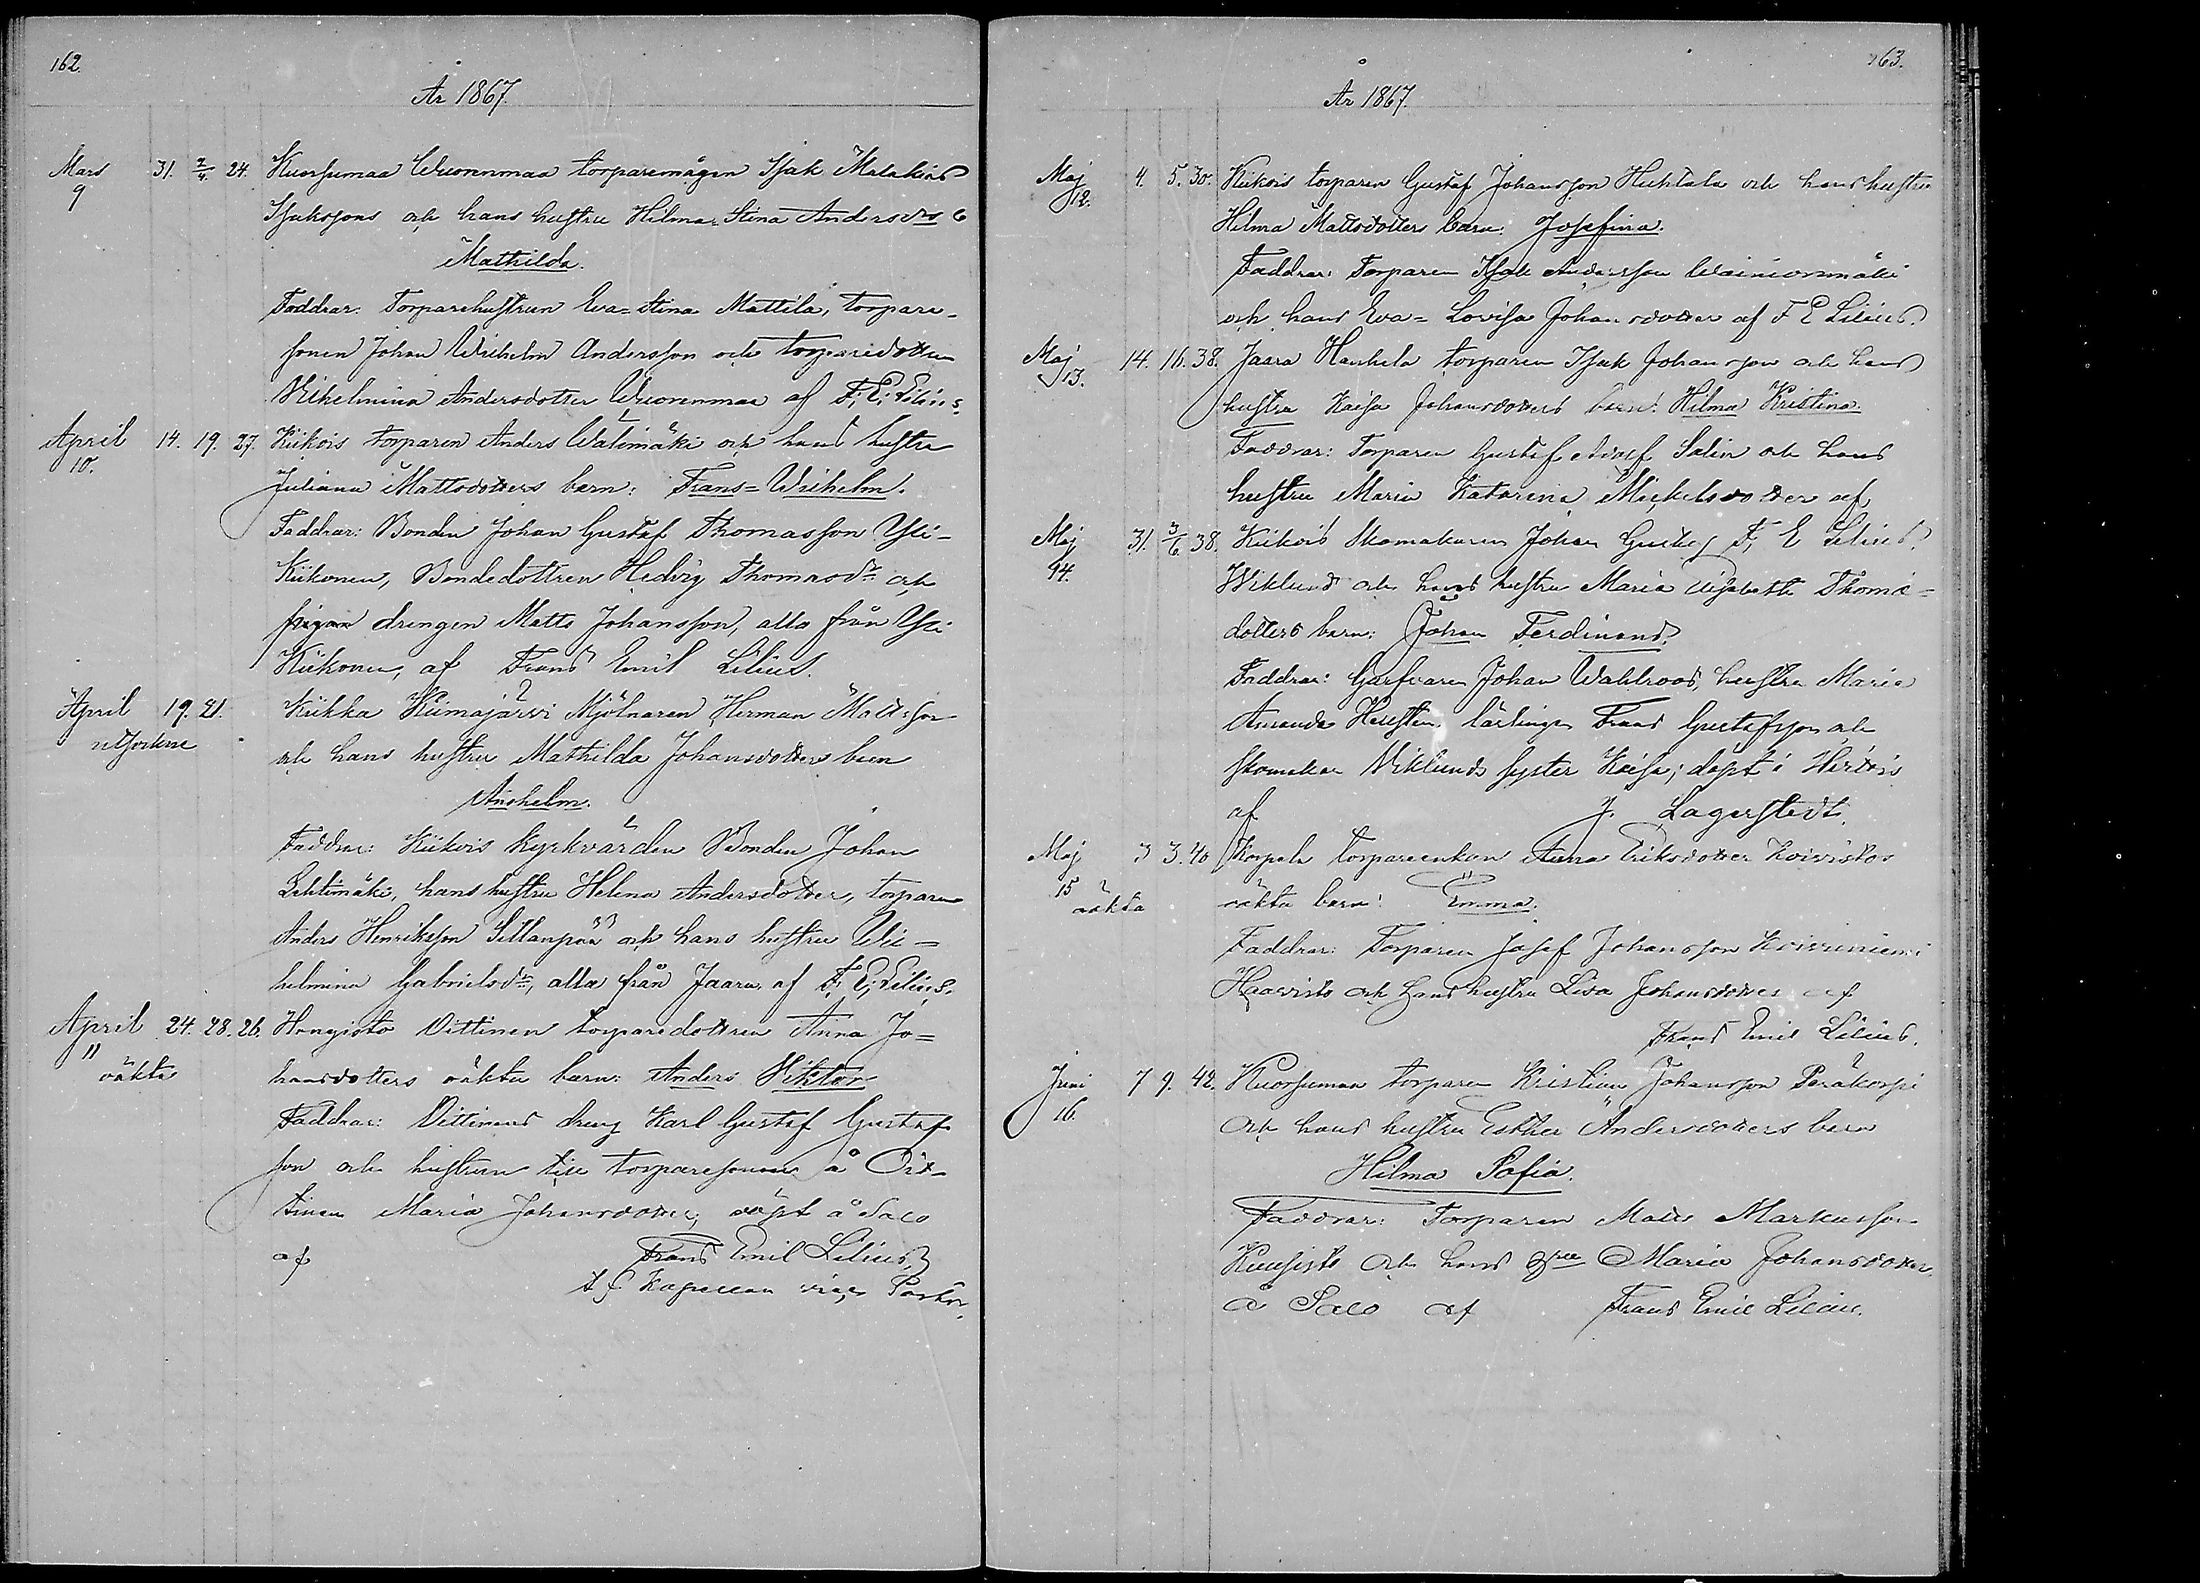 162.
År 1867.
Mars 31. 2/4. 24. Kuorsumaa Wuorenmaa torparemågen Isak Malakias
9 Isakssons och hans hustru Hilma Stina Andersdrs
Mathilda.
Faddrar: Torparehustrun Eva=Stina Mattila, torpare-
sonen Johan Wilhelm Andersson och torparedottren
Vilhelmina Andersdotter Wuorenmaa af F; E; Lilius.
April 14. 19. 27. Kiikois torparen Anders Walimäki och hans hustru
10. Juliana Mattsdotters barn: Frans=Wilhelm.
Faddrar: Bonden Johan Gustaf Thomasson Yli-
Kiikonen, Bondedottren Hedvig Thomasdr och
drengen Matts Johansson, alla från Yli
Kiikonen, af Frans Emil Lilius.
April 19. 21. Kiikka Kiimajärvi Mjölnaren Herman Mattsson
och hans hustru Mathilda Johansdotters barn
Anshelm.
Faddrar: Kiikois kyrkvärden Bonden Johan
Lehtimäki, hans hustru Helena Andersdotter, torparen
Anders Henriksson Sillanpää och hans hustru Wil=
helmina Gabrielsdr, alla från Jaara af F; E; Lilius.
April 24. 28. 26. Hongisto Vittinen torparedottren Anna Jo=
11 hansdotters oäkta barn: Anders Viktor
oäkta
Faddrar: Vittinens dreng Karl Gustaf Gustaf
son och hustrun till torparesonen å Vit-
tinen Maria Johansdotter, döpt å Salo
af Frans Emil Lilius
t f Kapellan Pastor.
163.
År 1867.
Maj 4. 5. 30. Kiikois torparen Gustaf Johansson Huhtala och hans hustru
12. Hilma Mattsdotters barn: Josefina.
Faddrar: Torparen Isak Andersson Wainionmäki
och hans Eva=Lovisa Johansdotter af F E Lilius.
Maj 14. 16. 38. Jaara Hankela torparen Isak Johansson och hans
13. hustru Kaisa Johansdotters barn: Hilma Kristina.
Faddrar: Torparen Gustaf Adolf Salin och hans
hustru Maria Katarina Mickelsdotter af
F, E Lilius.
Maj 31. 3/6 38. Kiikois Skomakaren Johan Gustaf
14. Wiklund och hans hustru Maria Elisabeth Thoma=
dotters barn: Johan Ferdinand.
Faddrar: Garfvaren Johan Wahlroos, hustru Maria
Amanda lärlingen Frans Gustafsson och
skomakar Viklunds syster Kaisa; döpt i
af J. Lagerstedt.
Maj 3 3. 40 Korpela torpareenkan Anna Eriksdotter Koivistos
15 oäkta oäkta barn: Emma.
Faddrar: Torparen Josef Johansson Koivuniemi
Haavisto och hans hustru Liva Johansdotter af
Frans Emil Lilius.
Juni 7 9. 42. Kuorsumaa torparen Kristian Johansson Peräkorpi
16. och hans hustru Esther Andersdotters barn
Hilma Sofia.
Faddrar: Torparen Matts Markusson
Kuusisto och hans Maria Johansdotter
å Salo af Frans Emil Lilius.